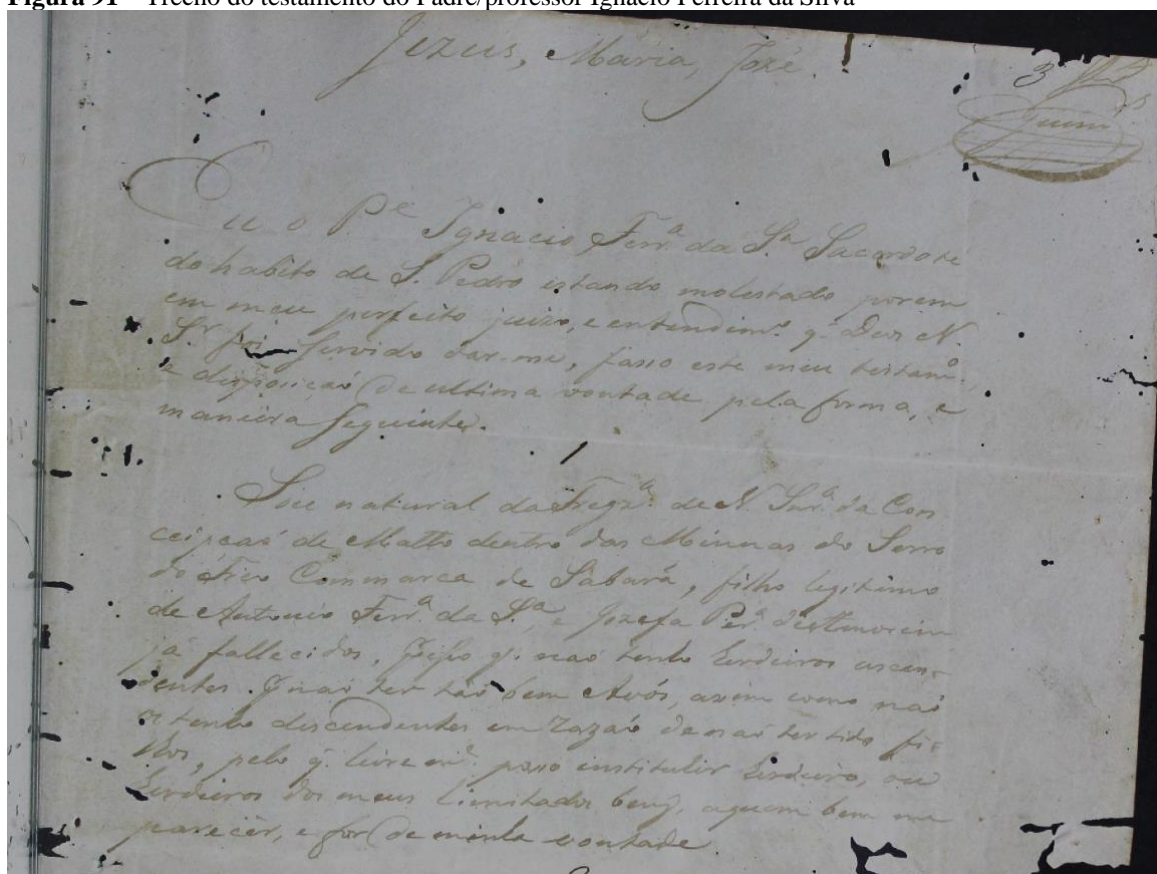 Figura 91 – Trecho do testamento do Padre/professor Ignacio Ferreira da Silva
Jezus, Maria, Jozé.
3
Eu o P.e Ignacio Ferr.a da S.a Sacerdote
do habito de S. Pedro estando molestado porem
em meu perfeito juizo, e entendim.o q. Deos N.
S.r foi servido dar-me, fasso este meu testam.o
e disposiçaó de ultima vontade pela forma, e
maneira seguinte.
Soie natural da Freg.a de N. Snr.a da Con
ceipçaó de Matto dentro das Minnas do Serro
do Frio Commarca de Sabará, filho legitimo
de Antonio Ferr.a da S.a, e Jozefa Per.a de Amorim
já fallecidos, q. naó tenho Erdeiros ascen-
dentes naó ter taó bem Avós, assim como naó
tenho descendentes em razaó de naó ter tido fi-
lhos, pelo q. livrem.e posso instituir Erdeiro, ou
Erdeiros dos meus limitados beng, aquem bem me
parecêr, e for de minha vontade.